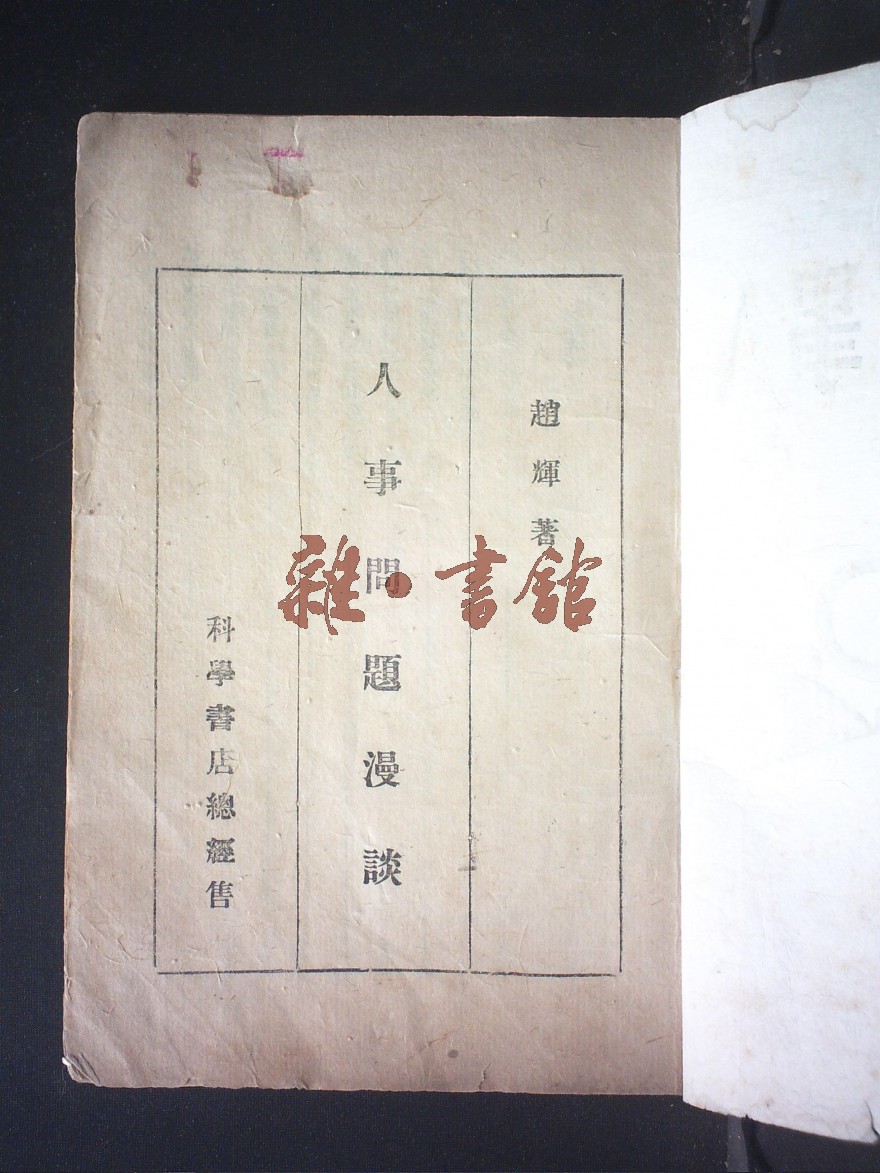 趙輝著
人事問題漫談
科學書店總經售
雜·書館